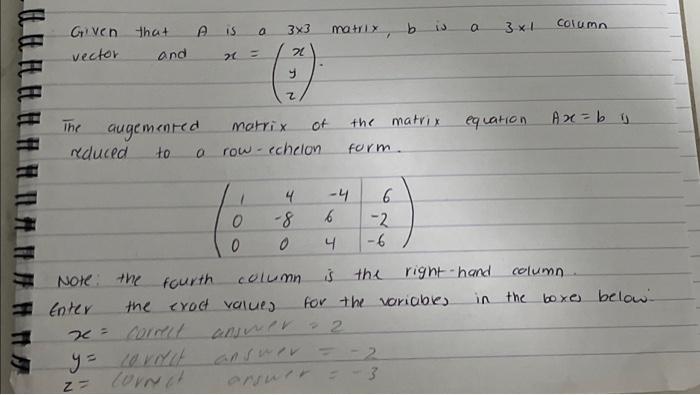 Given that A is a 3x3 matrix, b is a 3x1 column
vector and x = (x
y
z).
The augemented matrix of the matrix equation Ax = b is
reduced to a row-echelon form.
1 4 -4 | 6
0 -8 6 | -2
0 0 4 | -6
Note: the fourth column is the right-hand column.
Enter the exact values for the variables in the boxes below:
x = correct answer = 2
y = correct answer = -2
z = correct answer = -3